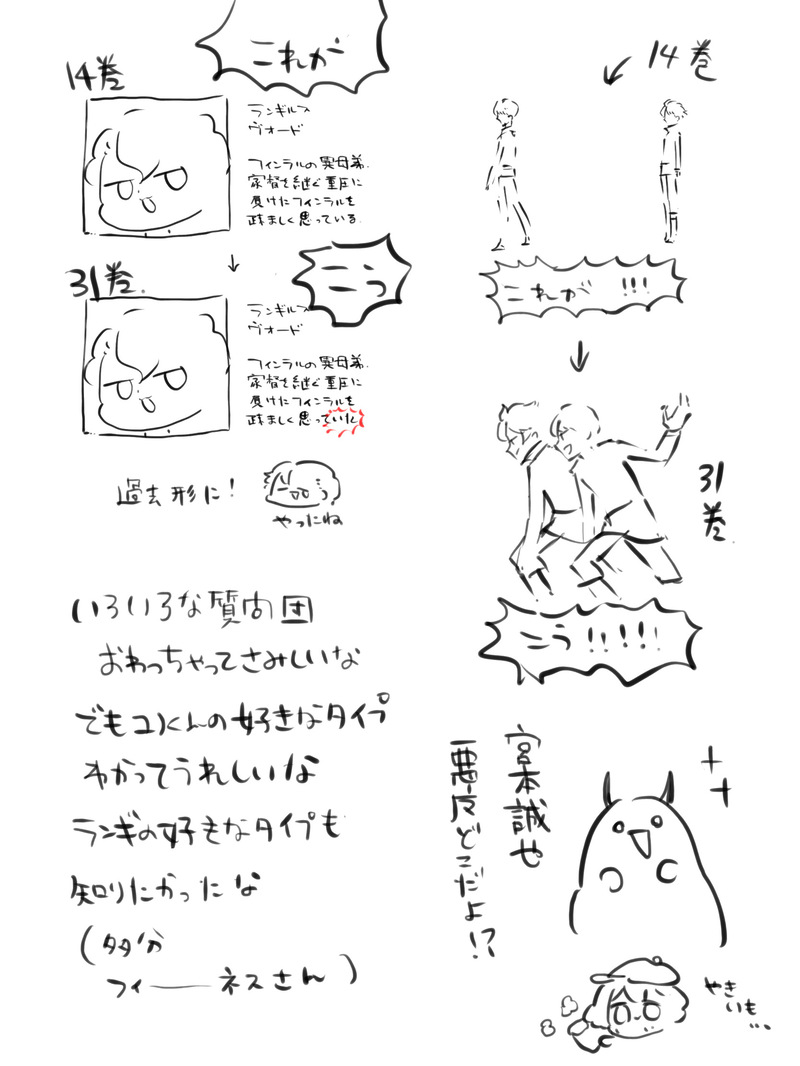 これが
14巻
ランギルス
ヴォード
フィンラルの異母弟.
家督を継ぐ重圧に
負けたフィンラルを
疎ましく思っている.
こう
31巻.
ランギルス
ヴォード
フィンラルの異母弟.
家督を継ぐ重圧に
負けたフィンラルを
疎ましく思っていた
過去形に!
やったね
いろいろな質問団
おわっちゃってさみしいな
でもユノくんの好きなタイプ
わかってうれしいな
ランギの好きなタイプも
知りたかったな
(多分
フィ――ネスさん)
14巻
これが!!!
31巻.
こう!!!!!
宮本誠也
悪反どこだよ!?
やき
いも...